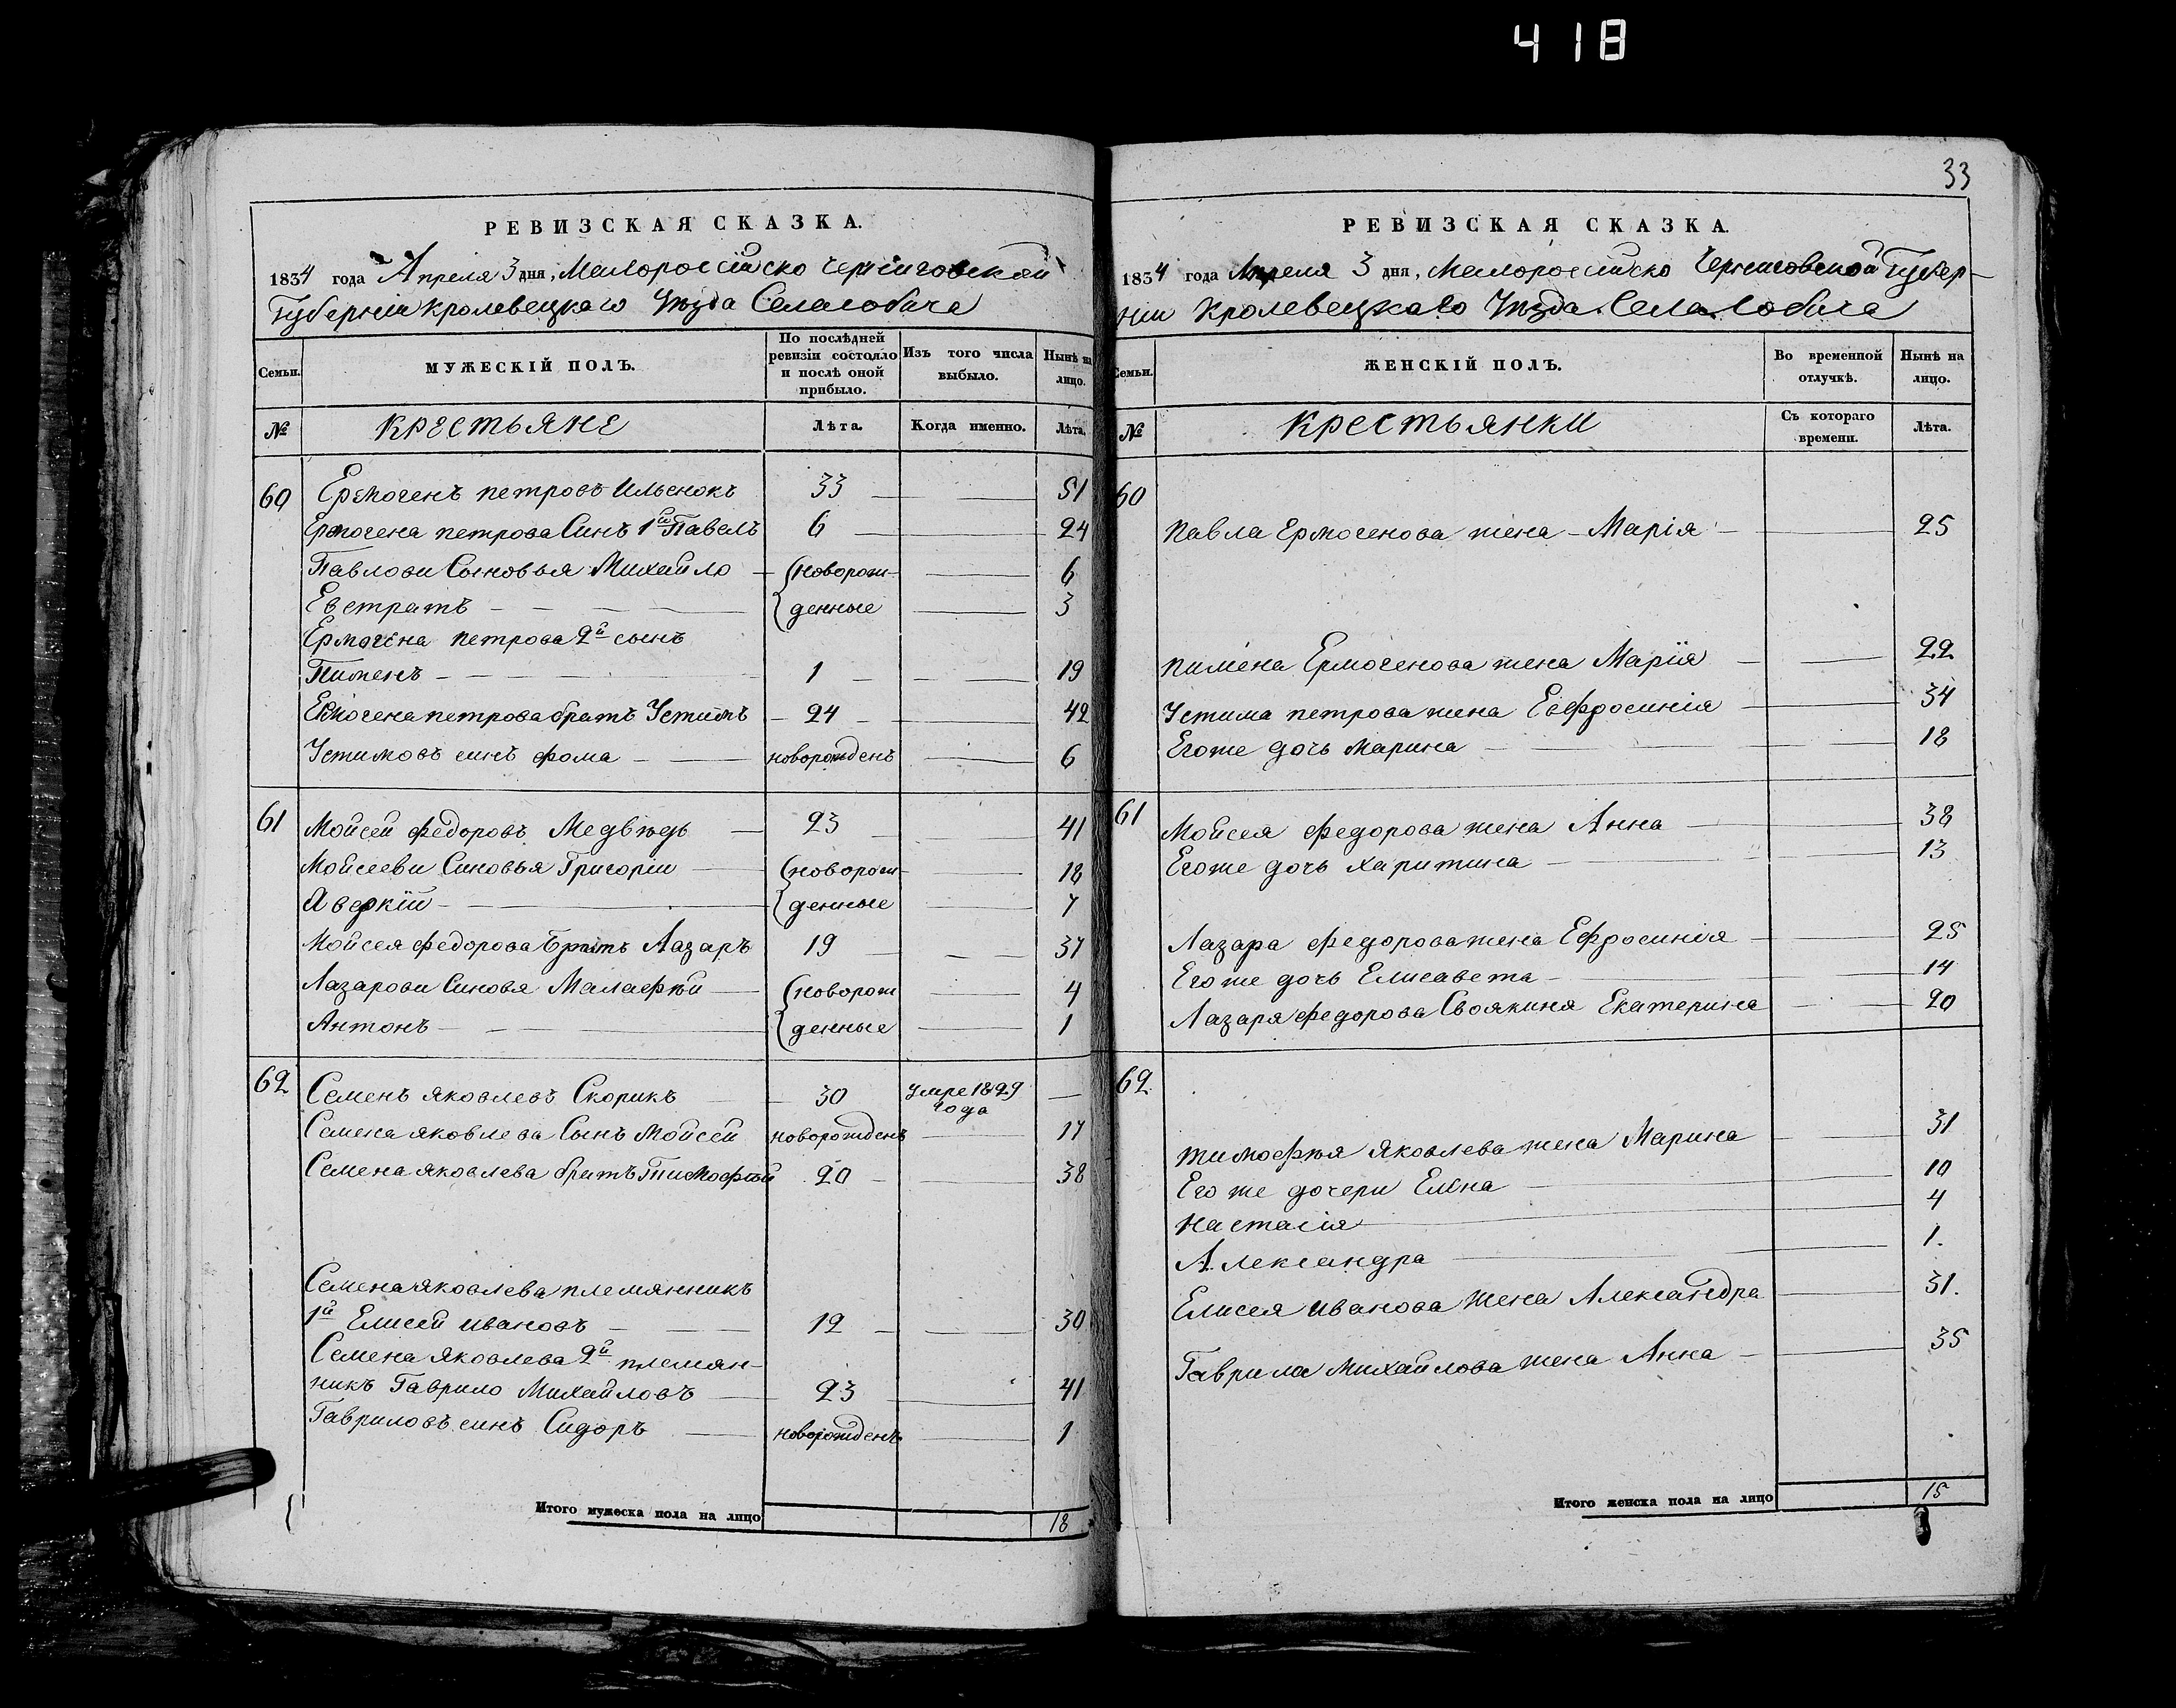 418
РЕВИЗСКАЯ СКАЗКА.
1834 года Апреля 3 дня, Малоросiйско Черниговской
Губернiи Кролевецкаго Уѣзда Села Собича
Семьи.
МУЖЕСКІЙ ПОЛЪ.
По послѣдней ревизіи состояло и послѣ оной прибыло.
Изъ того числа выбыло.
Нынѣ на лицо.
№ Крестьяне Лѣта. Когда именно. Лѣта.
60 Ермогенъ петровъ Ильенокъ 33 51
Ермогена петрова Синъ 1й Павелъ 6 24
Павлови Сыновья Михайло (новорож- 6
Евстратъ { денные 3
Ермогена петрова 2й сынъ
Пименъ 1 19
Ермогена петрова братъ Устимъ 24 42
Устимовъ синъ фома новорожденъ 6
61 Мойсей федоровъ Медвѣдь 23 41
Мойсееви Синовья Григорiи (новорож- 18
Аверкiй { денные 7
Мойсея федорова братъ Лазаръ 19 37
Лазарови Синовя Малафѣй (новорож 4
Антонъ { денные 1
62 Семенъ яковлевъ Скорикъ 30 умре 1829 —
года
Семена яковлева Сынъ Мойсей новорожденъ 17
Семена яковлева братъ Тимофѣй 20 38
Семена яковлева племянникъ
1й Елисей ивановъ 12 30
Семена яковлева 2й племян-
никъ Гаврило Михайловъ 23 41
Гавриловъ синъ Сидоръ новорожденъ 1
Итого мужеска пола на лицо 18
33
РЕВИЗСКАЯ СКАЗКА.
1834 года Апреля 3 дня, Малоросiйско Черниговской Губер-
нiи Кролевецкаго Уѣзда Села Собича
Семьи.
ЖЕНСКІЙ ПОЛЪ.
Во временной отлучкѣ.
Нынѣ на лицо.
№ Крестьянки Съ котораго времени. Лѣта.
60
павла Ермогенова жена Марiя 25
пимена Ермогенова жена Марiя 22
Устима петрова жена Евфросинiя 34
Егоже дочь марина 18
61 Мойсея федорова жена Анна 38
Егоже дочь харитина 13
Лазара федорова жена Ефросинiя 25
Его же дочь Елисавета 14
Лазаря федорова Своякиня Екатерина 20
62
тимофѣя яковлева жена Марина 31
Его же дочери Елена 10
настасiя 4
Александра 1.
Елисея иванова жена Александра 31.
Гаврила михайлова жена Анна 35
Итого женска пола на лицо 15